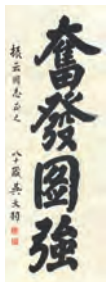 振云同志正之
奮發圖強
八十叟吳文羽